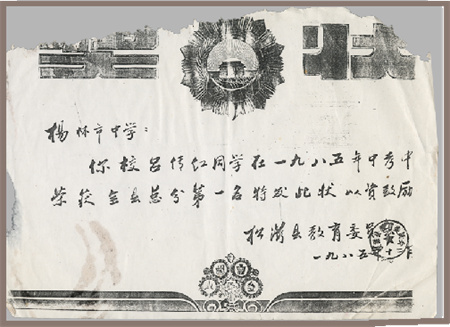 杨林市中学：
你校吕传红同学在一九八五年中考中
荣获全县总分第一名特发此状以资鼓励
松滋县教育委员
一九八五年